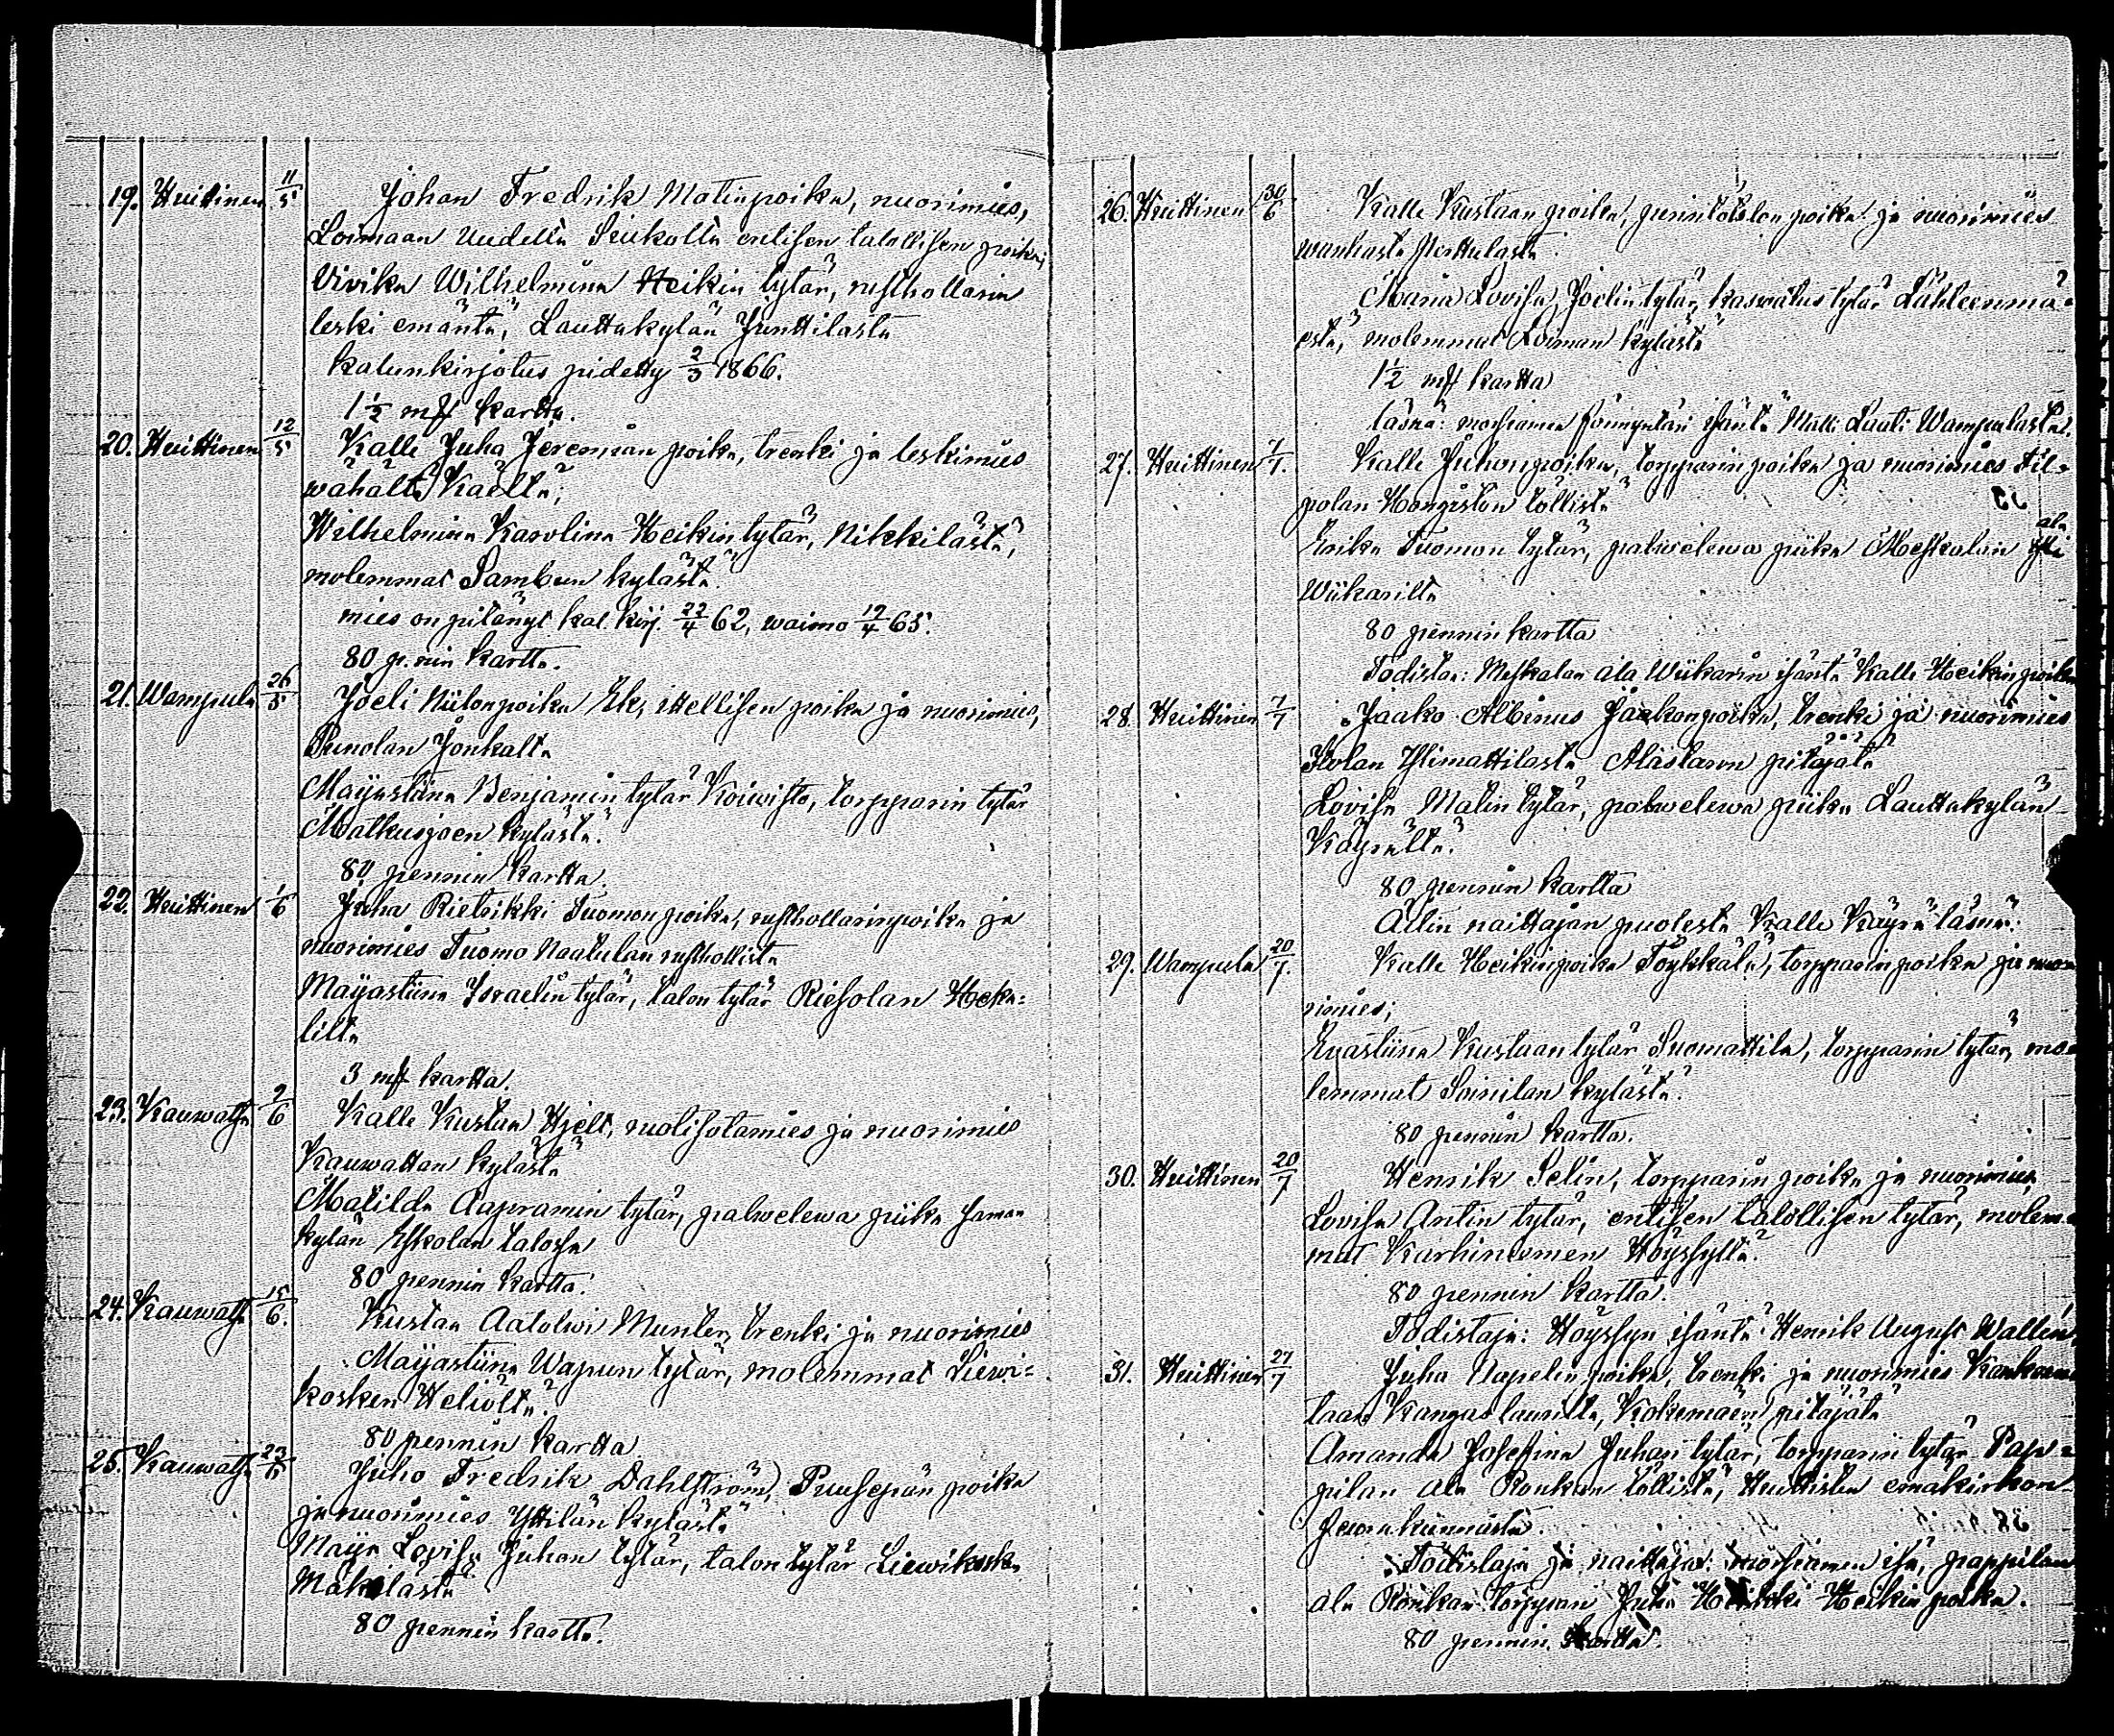 19. Huittinen 11/5 Johan Fredrik Matinpoika, nuorimies,
Loimaan Uudelta Seukolta entisen talollisen poika,
Vivika Wilhelmina Heikin tytär, rusthollarin
leski emäntä, Lauttakylän Junttilasta
kalunkirjotus pidetty 2/3 1866.
1½ mk kartta.
20. Huittinen 12/5 Kalle Juha Jeremian poika, trenki ja leskimies
wähältä Kaelta;
Wilhelmina Karolina Heikin tytär, Nikkilästä,
molemmat Sambun kylästä.
mies on pitänyt kal. kirj. 22/4 62, waimo 19/4 65.
80 p:nin kartta.
21. Wampula 26/5 Joeli Niilonpoika Ek, itellisen poika ja nuorimies,
Punolan Jonkalta
Mayastiina Benjamin tytär Koiwisto, torpparin tytär
Matkusjoen kylästä.
80 pennin kartta.
22. Huittinen 1/6 Juha Rietrikki Tuomonpoika, rusthollarinpoika ja
nuorimies Tuomo Naatulan rusthollista
Mayastiina Israelin tytär, talon tytär Riesolan Heka=
lilta
3 mk kartta.
23. Kauwatsa 2/6 Kalle Kustaa Hjelt, ruotisotamies ja nuorimies
Kauwattan kylästä
Matilda Aapramin tytär, palwelewa piika saman
kylän Eskolan talossa
80 pennin kartta.
24. Kauwatsa 15/6. Kustaa Aatolwi Munter, trenki ja nuorimies
Mayastiina Wapun tytär, molemmat Liewi=
kosken Heliöltä.
80 pennin kartta
25. Kauwatsa 23/6 Juho Fredrik Dahlström, Puusepän poika
ja nuorimies Yttilän kylästä
Maija Lovisa Juhan tytär, talon tytär Liewikosken
Mäkelästä
80 pennin kartta.
26. Huittinen 30/6 Kalle Kustaan poika, perintötalon poika ja nuorimies
wanhasta Perttulasta
Maria Lovisa Joelin tytär, kaswatus tytär Lähteenmä=
estä, molemmat Loiman kylästä
1½ mk kartta
läsnä: morsiamen förmyntäri isäntä Matti Lauti Wampulasta.
27. Huittinen 7/7. Kalle Juhonpoika, torpparin poika ja nuorimies Sil=
polan Hongiston töllistä
Erika Tuomon tytär, palwelewa piika Meskalan ala
Wiikarilta
80 pennin kartta
Todistaa: Meskalan ala Wiikarin isäntä Kalle Heikinpoika
28. Huittinen 7/7 Jaako Albinus Jaakonpoika, trenki ja nuorimies
Ilolan Ylimattilasta Alastaron pitäjätä
Lovisa Matin tytär, palwelewa piika Lauttakylän
Käyrältä.
80 pennin kartta
Ällin naittajan puolesta Kalle Käyrä läsnä.
29. Wampula 20/7. Kalle Heikinpoika Töykkälä, torpparin poika ja nuo=
rimies;
Evastiina Kustaan tytär Suomattila, torpparin tytär, mo=
lemmat Soinilan kylästä.
80 pennin kartta.
30. Huittinen 20/7 Henrik Selin, torpparin poika ja nuorimies,
Lovisa Antin tytär, entisen talollisen tytär, molem=
mat Karhiniemen Höyssyltä.
80 pennin kartta.
Todistaja: Höyssyn isäntä Henrik August Wallén
31. Huittinen 27/7 Juha Aapelin poika, trenki ja nuorimies
Kangaslaurilta, Kokemäen pitäjätä
Amanda Josefiina Juhan tytär, torpparin tytär Pap=
pilan ala Ronkan töllistä, Huittisten emäkirkon
seurakunnasta.
Todistaja ja naittaja: morsiamen isä, pappilan
ala Ronkan torppari Juha Heikki Heikin poika.
80 pennin kartta.